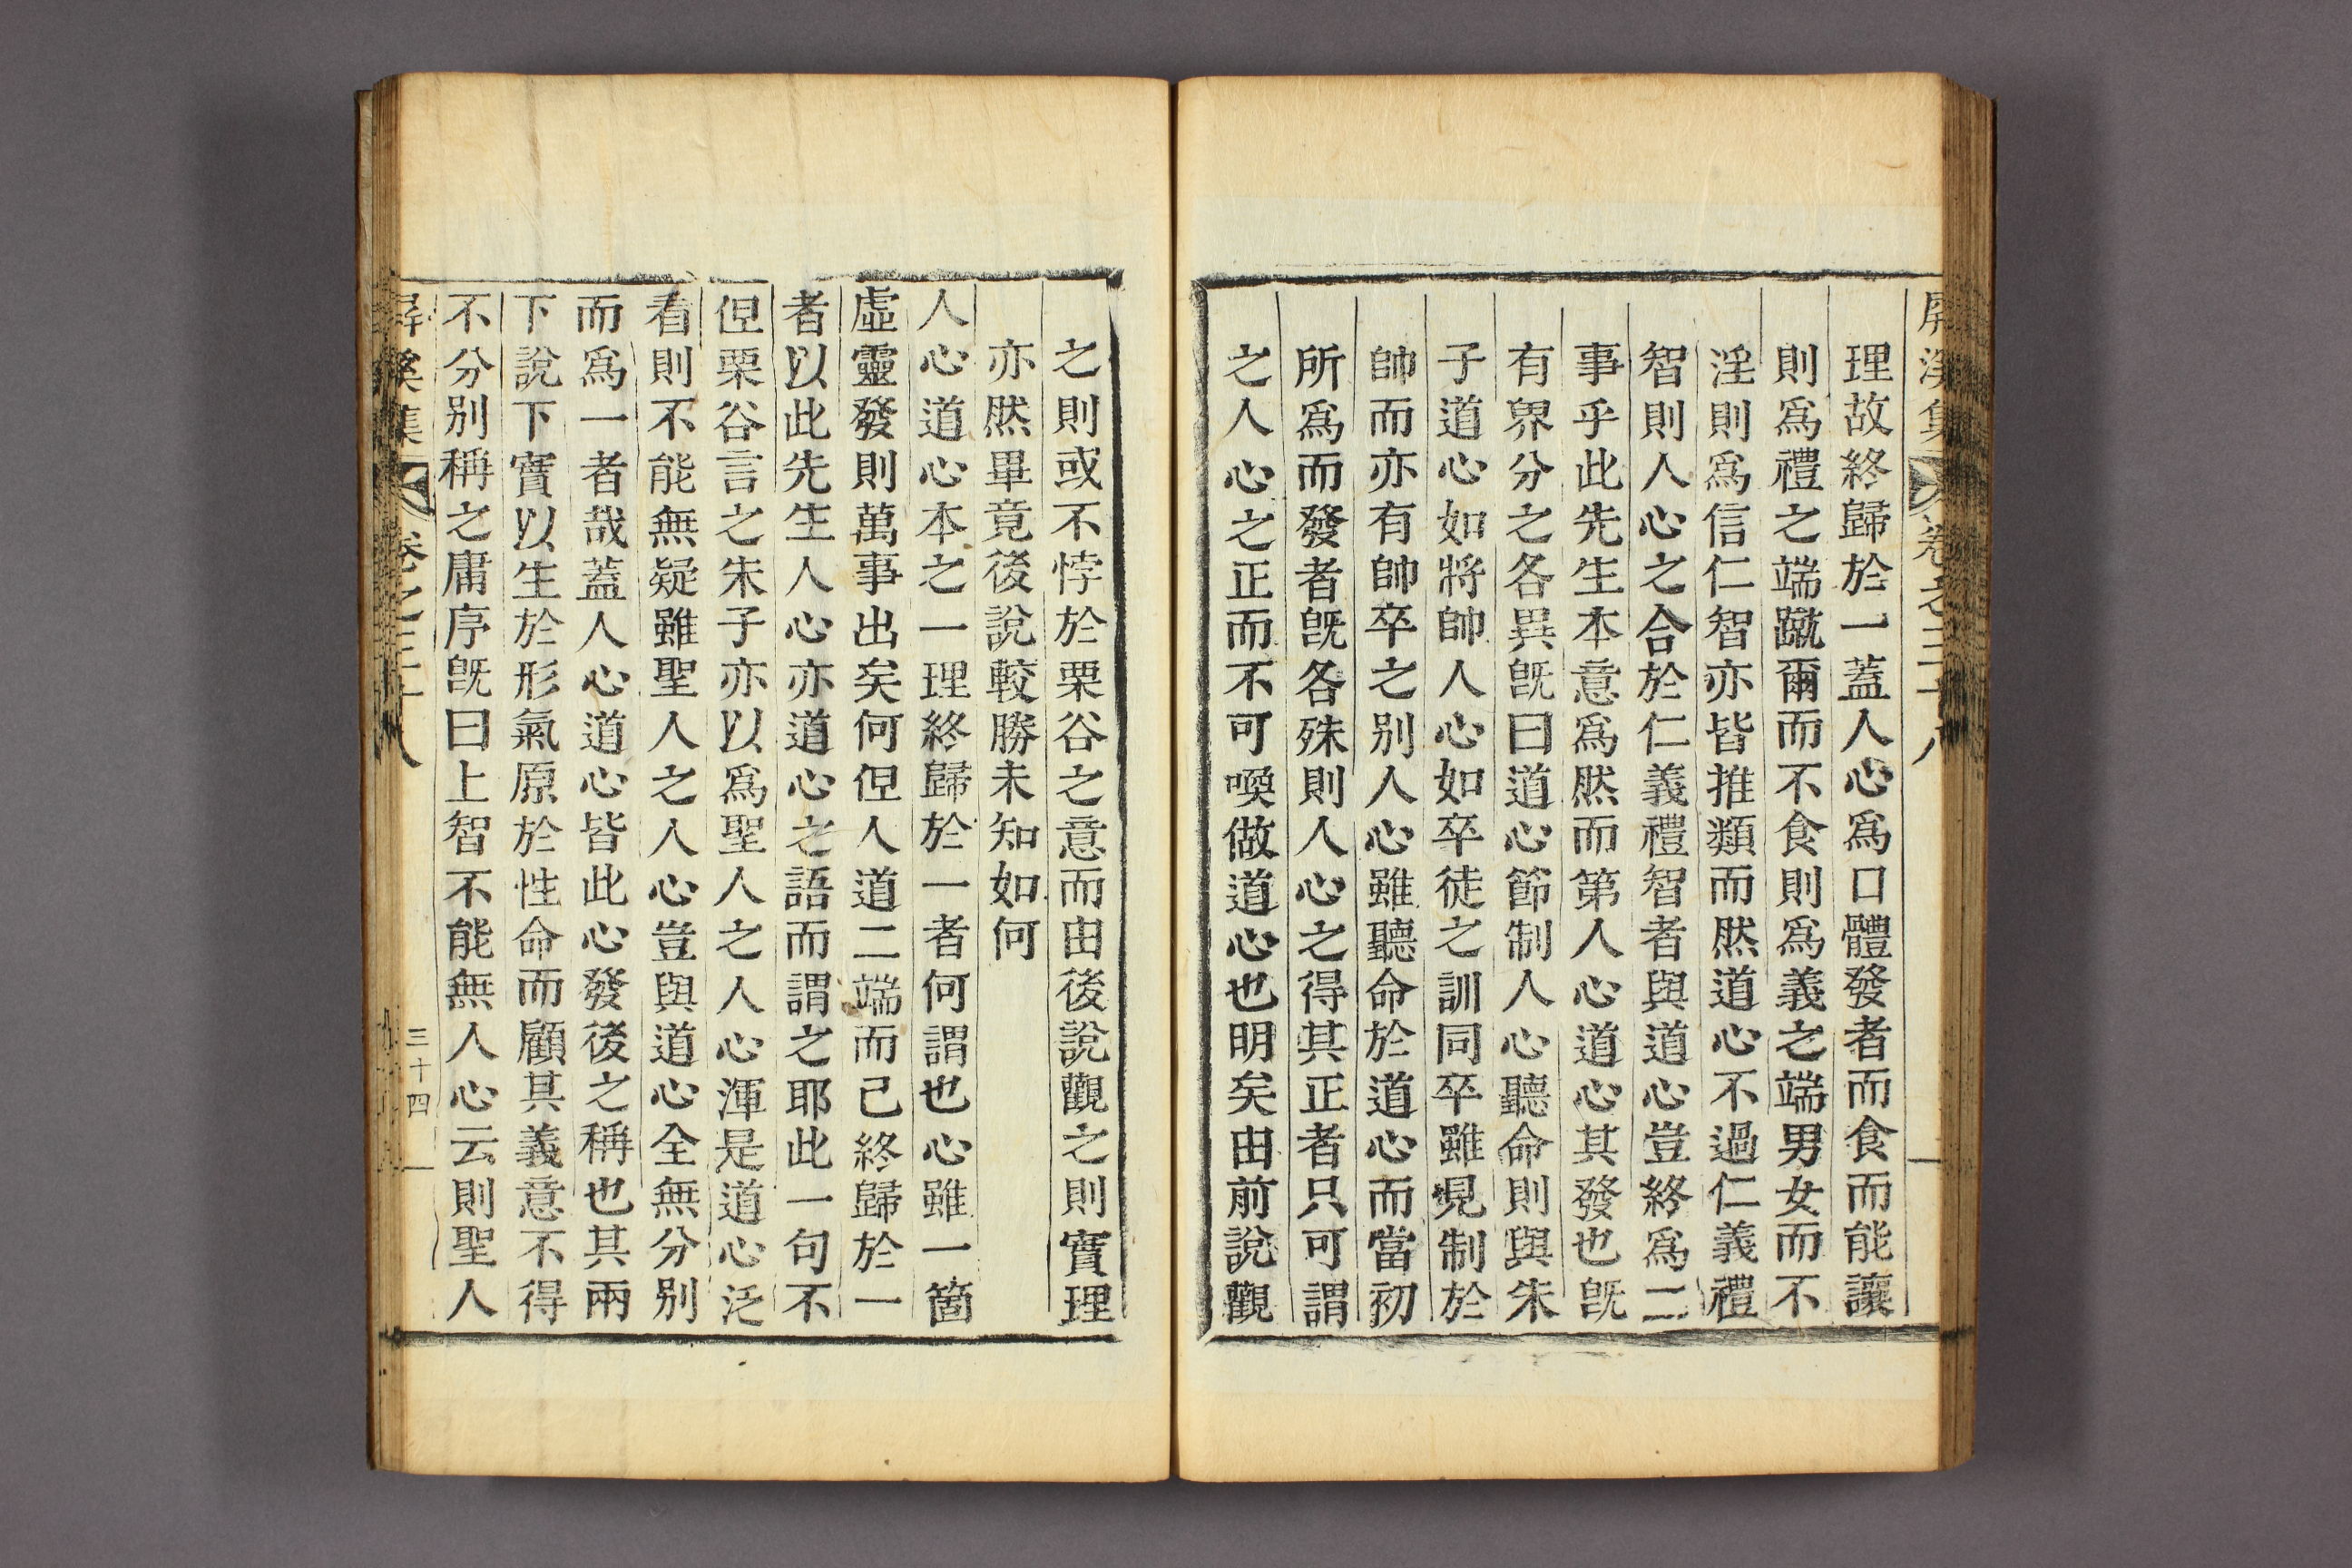 屏溪集 卷之三十八
理故終歸於一蓋人心爲口體發者而食而能讓
則爲禮之端蹴爾而不食則爲義之端男女而不
淫則爲信仁智亦皆推類而然道心不過仁義禮
智則人心之合於仁義禮智者與道心豈終爲二
事乎此先生本意爲然而第人心道心其發也旣
有界分之各異旣曰道心節制人心聽命則與朱
子道心如將帥人心如卒徒之訓同卒雖見制於
帥而亦有帥卒之別人心雖聽命於道心而當初
所爲而發者旣各殊則人心之得其正者只可謂
之人心之正而不可喚做道心也明矣由前說觀
之則或不悖於栗谷之意而由後說觀之則實理
亦然畢竟後說較勝未知如何
人心道心本之一理終歸於一者何謂也心雖一箇
虛靈發則萬事出矣何但人道二端而已終歸於一
者以此先生人心亦道心之語而謂之耶此一句不
但栗谷言之朱子亦以爲聖人之人心渾是道心泛
看則不能無疑雖聖人之人心豈與道心全無分別
而爲一者哉蓋人心道心皆此心發後之稱也其兩
下說下實以生於形氣原於性命而顧其義意不得
不分別稱之庸序旣曰上智不能無人心云則聖人
屏溪集 卷之三十八 三十四